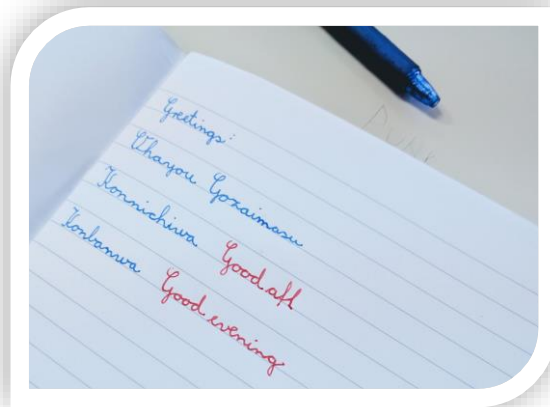 Greetings:
Ohayou Gozaimasu
Konnichiwa Good aft
Konbanwa Good evening